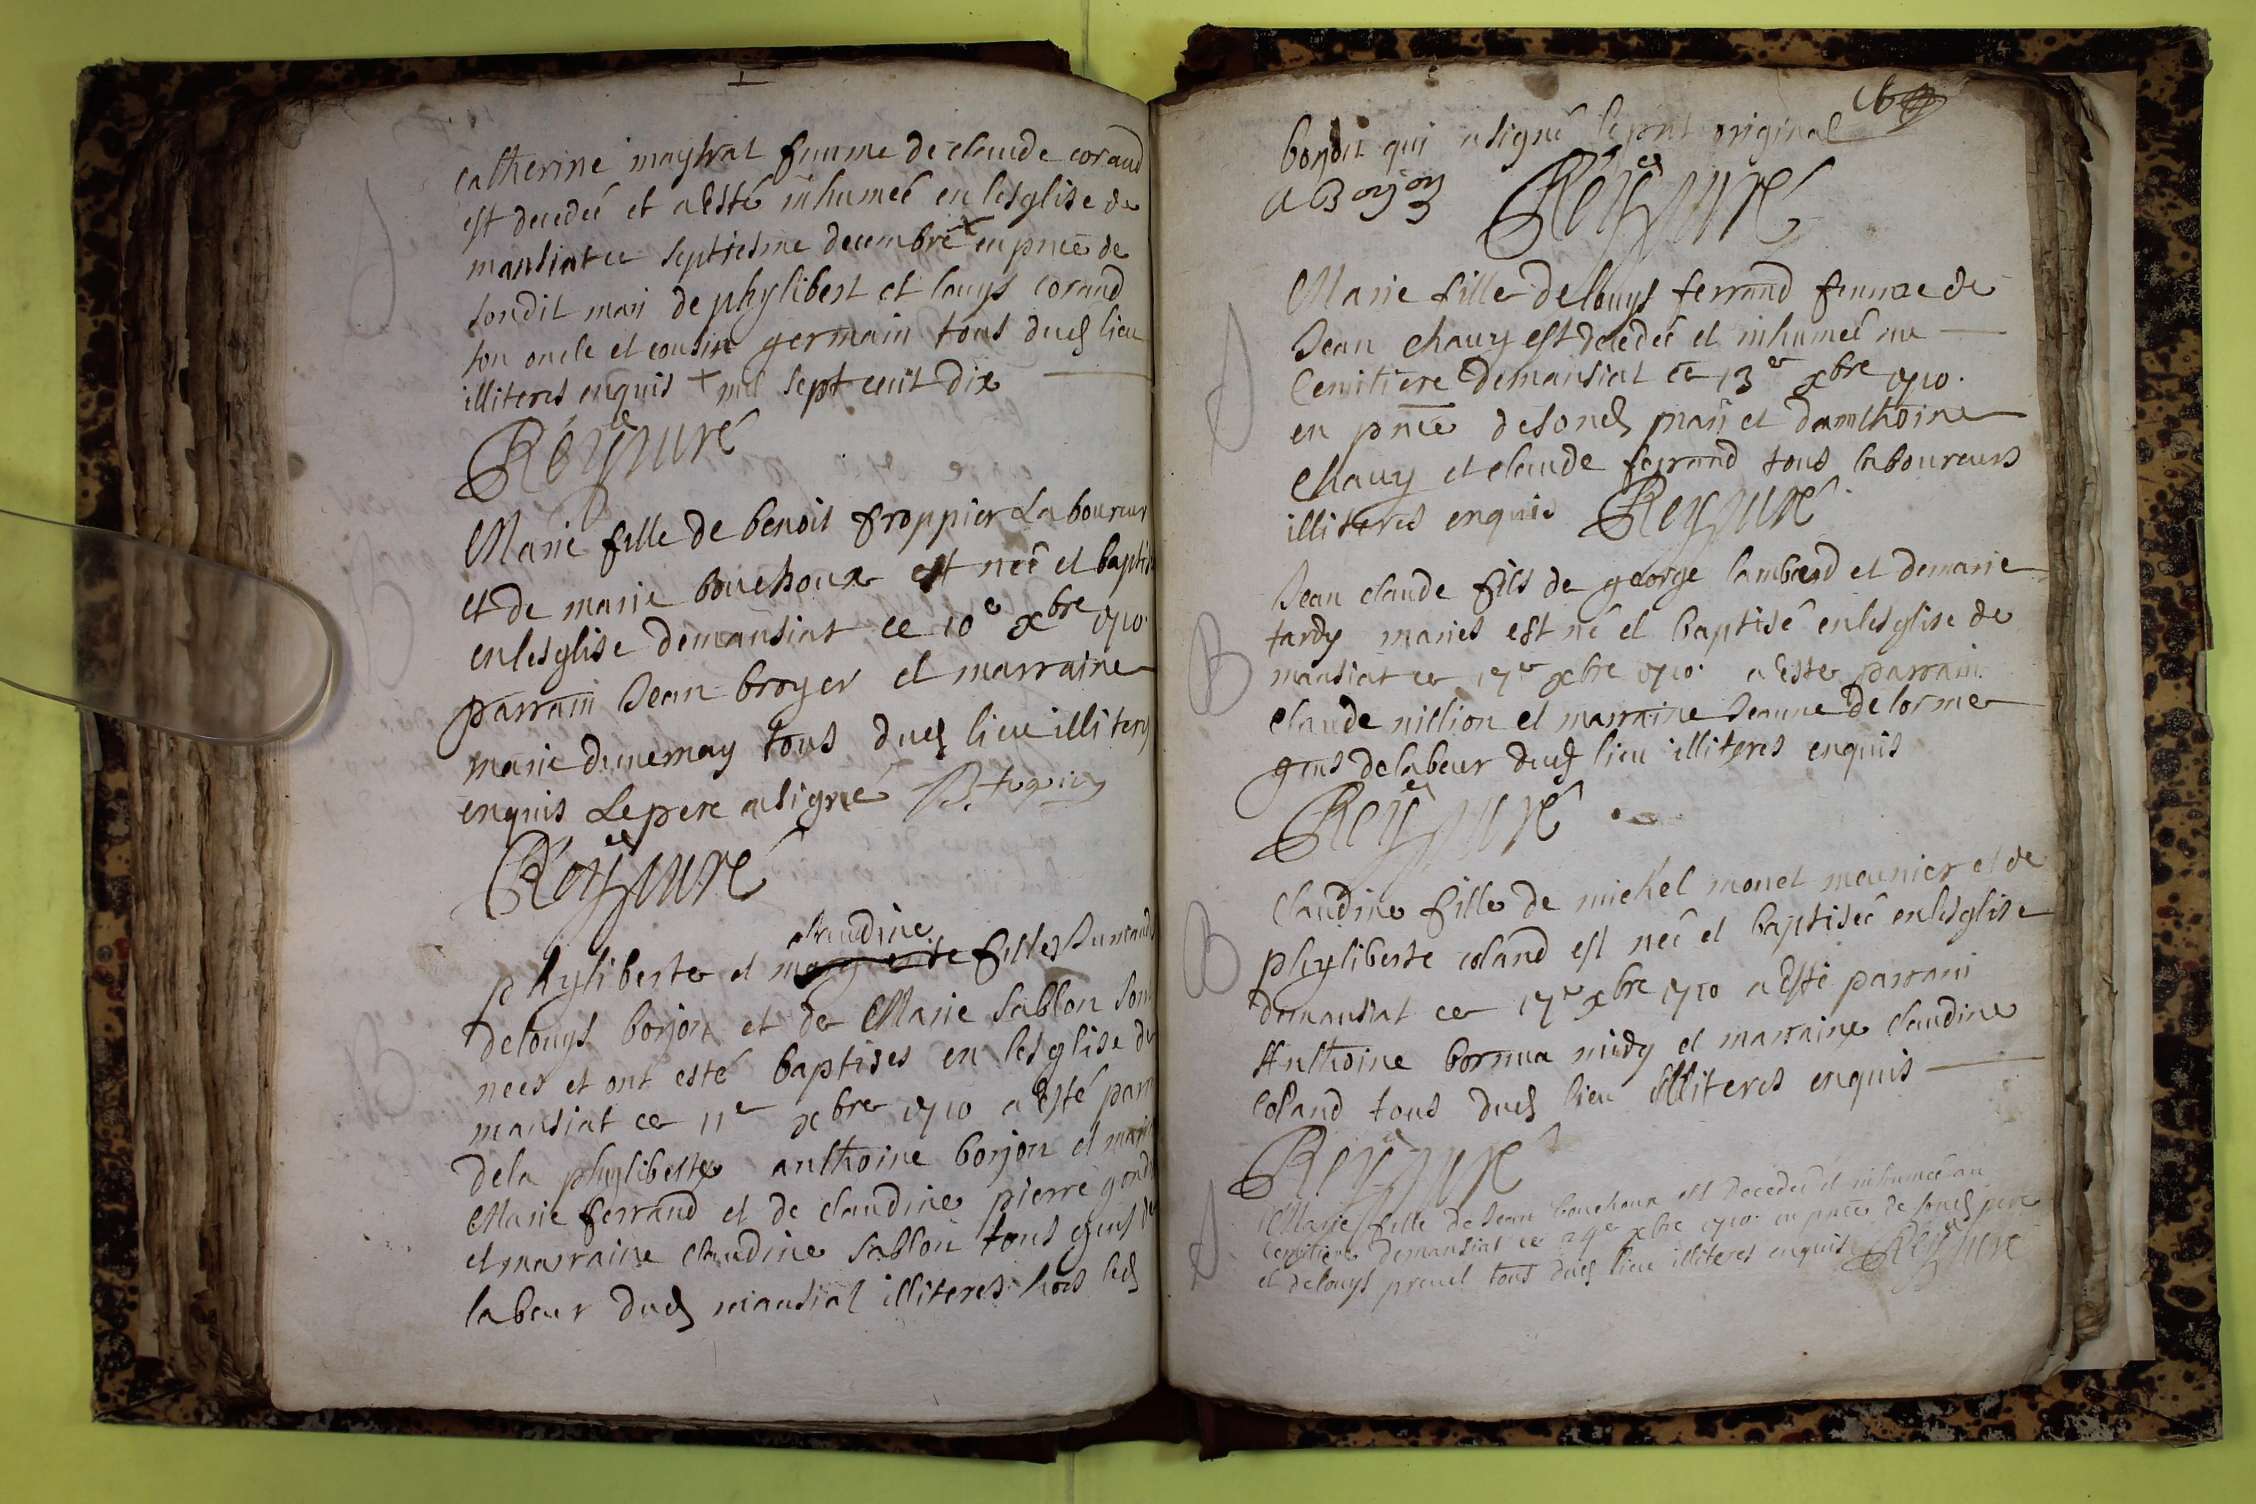 catherine maystrat femme de claude corand
est decedeé et a Esté inhumeé en lesglise de
mansiat ce septiesme decembre en pnce de
sondit mari de phylibert et louys corand
son oncle et cousin germain tous dud lieu
illiteres enquis + mil sept cent dix
Rey curé
Marie fille de benoit froppier Laboureur
et de marie bouchoux est neé et baptis
en lesglise de mansiat ce 10e xbre 1710
parrain Jean broyer et marraine
marie dunernay tous dud lieu illiteres
enquis Le pere a signé
Rey curé
claudine
phyliberte et filles Jumand
de louys borjon et de Marie sablon son
neés et ont esté baptises en lesglise de
mansiat ce 11e xbre 1710 a Esté parr
de la phyliberte anthoine borjon et marr
Marie ferrand et de claudine pierre gond
et marraine claudine sablon tous gens de
labeur dud mansiat illiteres hors led
borjon qui a signé le pnt original
A Borjon
Rey curé
Marie fille de louys ferrand femme de
Jean chavy est decedeé et inhumeé au
Cemitiere de mansiat ce 13e xbre 1710
en pnce de sond mari et damthoine
chavy et claude ferrand tous laboureurs
illiteres enquis Rey curé
Jean claude fils de george lamberd et de marie
tardy maries est né et baptisé en lesglise de
mansiat ce 17e xbre 1710 a Esté parrain
claude nillion et marraine Jeanne delorme
gens de labeur dud lieu illiteres enquis
Rey curé
Claudine fille de michel monet meunier et de
phyliberte coland est neé et baptiseé en lesglise
de mansiat ce 17e xbre 1710 a Esté parrain
Anthoine midy et marraine claudine
coland tous dud lieu illiteres enquis
Rey curé
Marie fille de Jean bouchoux est decedeé et inhumeé au
Cemitiere de mansiat ce 24e xbre 1710 en pnce de sond pere
et de louys preuel tous dud lieu illiteres enquis Rey curé